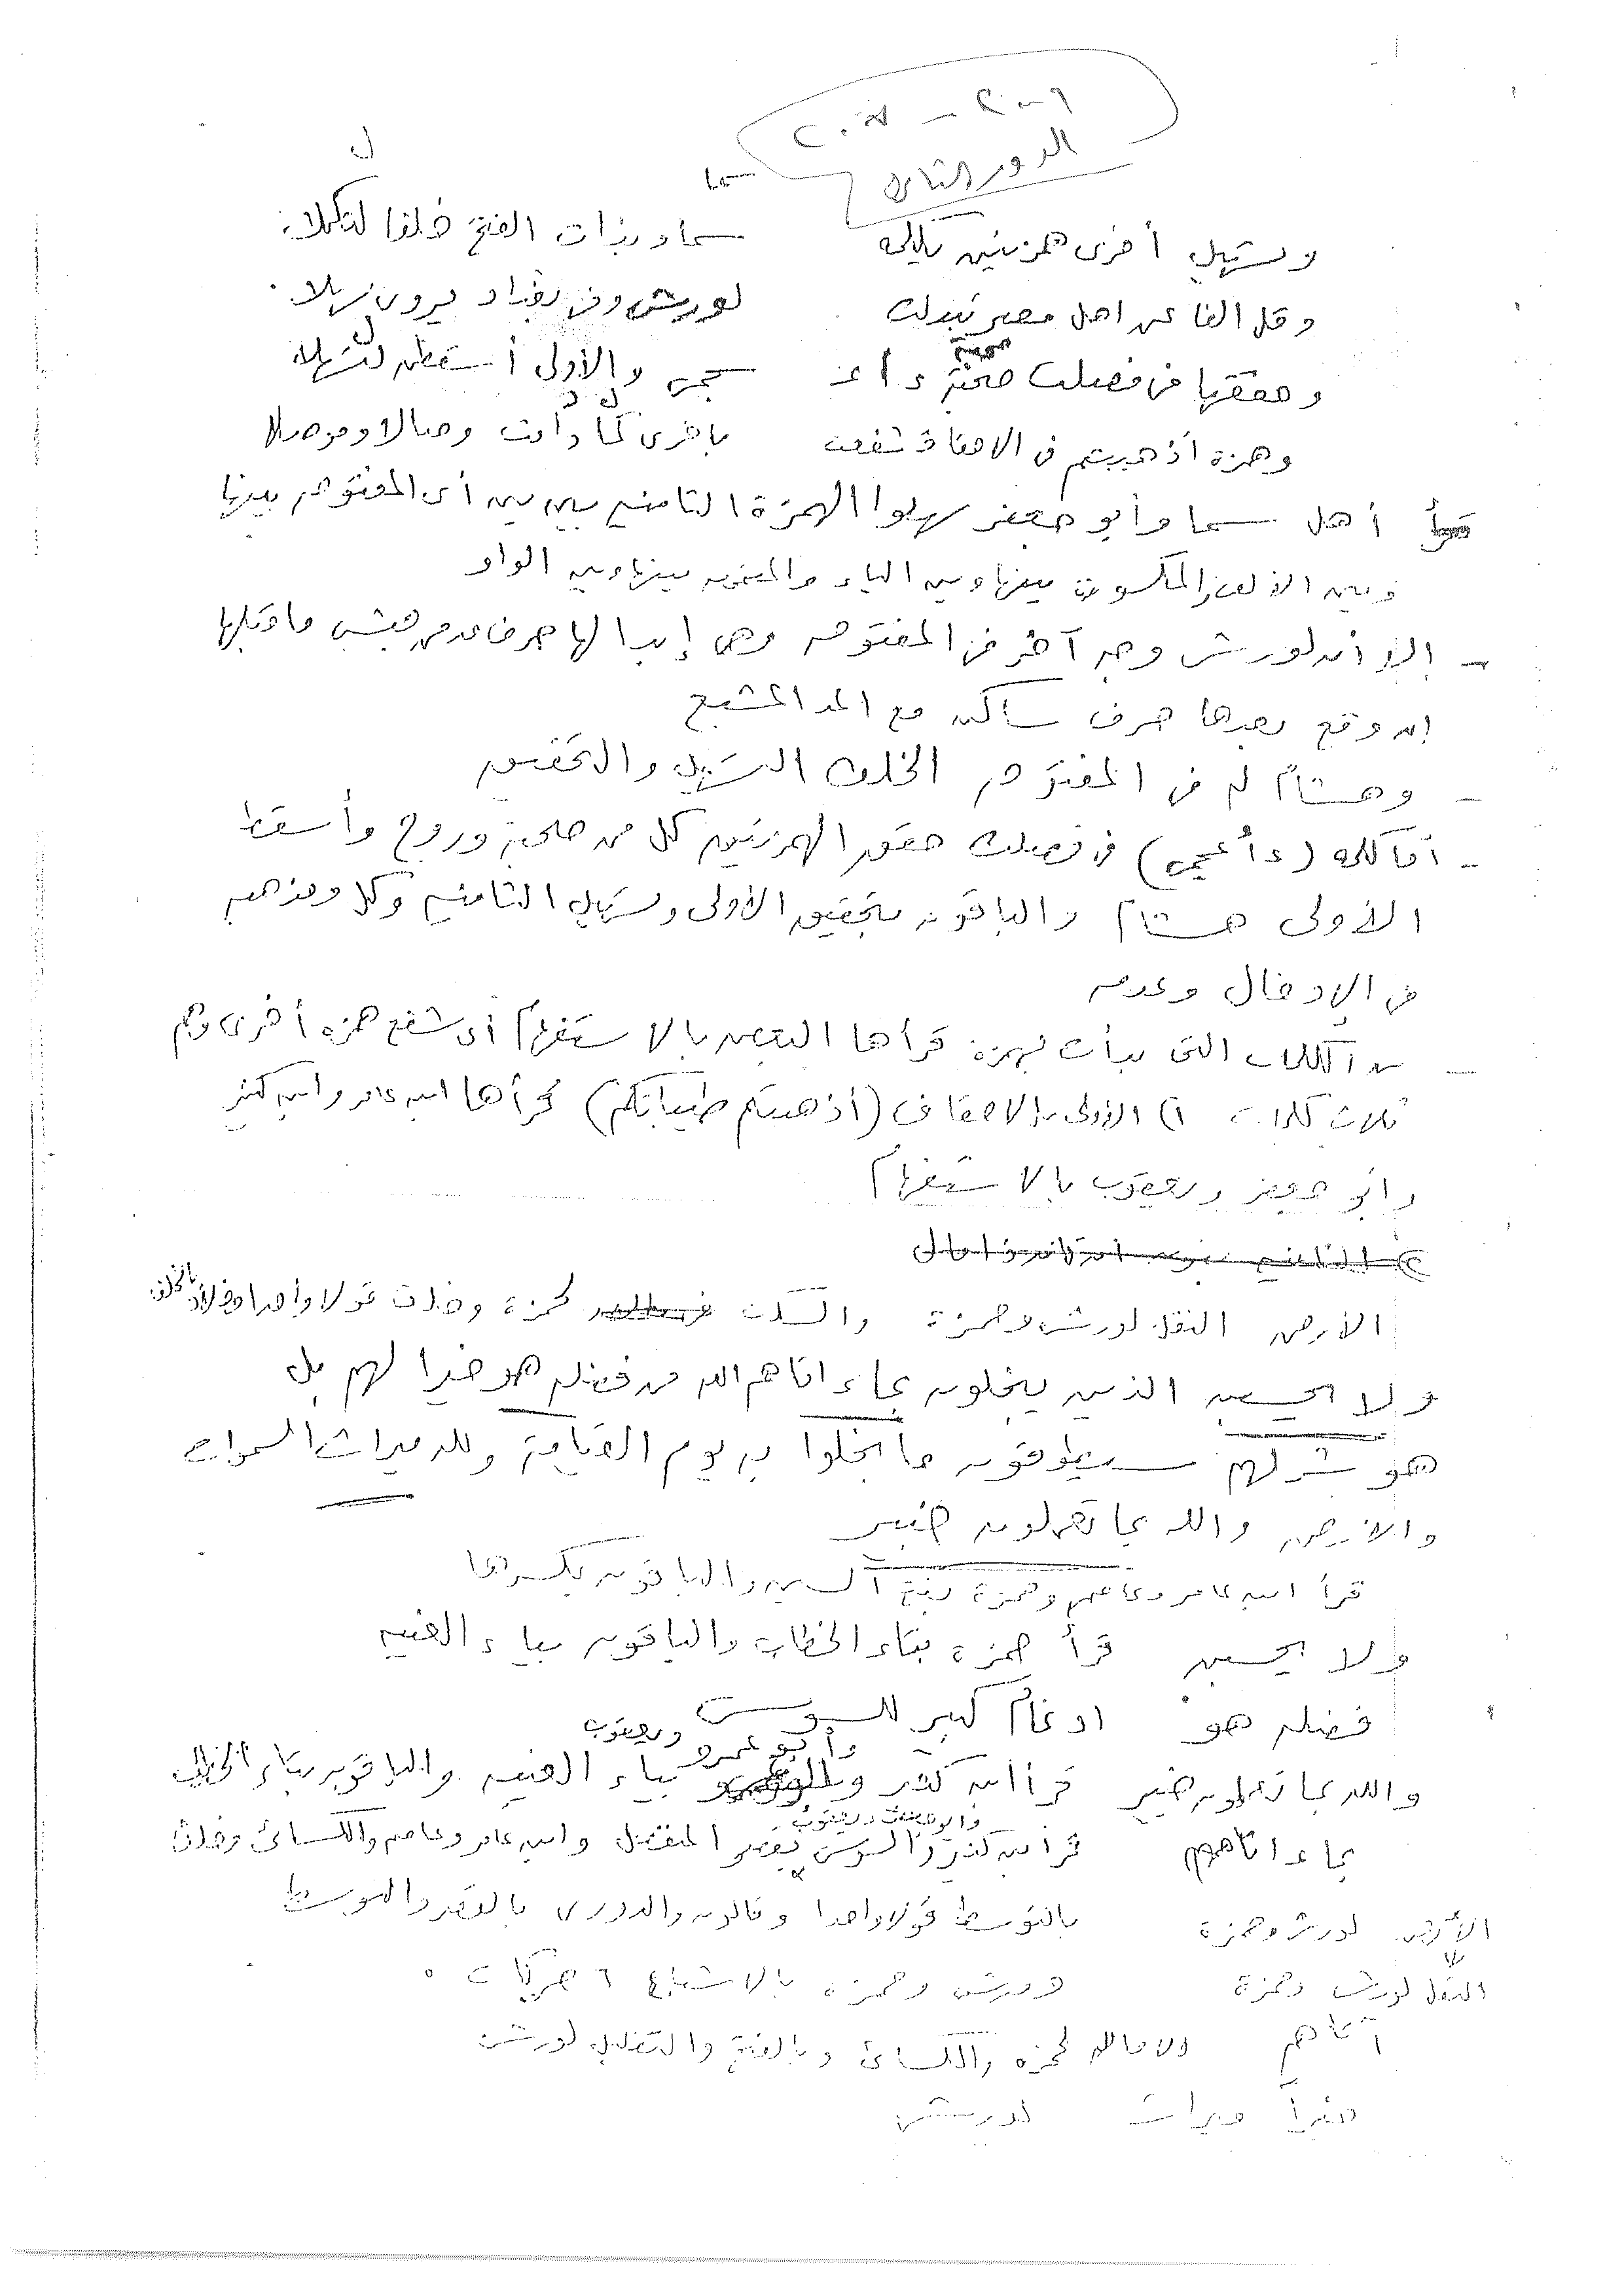 ٢٠٠٦ - ٢٠٠٥
الدور الثاني
سما
ل
وتسهيل أخرى همزتين بكلمة سما وبذات الفتح خلفا لتجملا
وقل الفا عن اهل مصر تبدلت لورش وفي بغداد يروى مسهلا
وحققها في فصلت صحبة ءاعـ ـجمي والأولى أسقطن لتسهلا
وهمزة أذهبتم في الاحقاف شفعت باخرى كما دامت وصالا موصلا
قرأ أهل سما وأبو جعفر سهلوا الهمزة الثانية بين بين أى المفتوحة بينها
وبين الالف والمكسورة بينها وبين الياء والمضمومة بينها وبين الواو
- إلا أن لورش وجه آخر في المفتوحة وهى إبدالها حرف مد من جنس ماقبلها
إن وقع بعدها حرف ساكن مع المد المشبع
- وهشام له في المفتوحة الخلف التسهيل والتحقيق
- أما كلمة (ءأعجمى) في فصلت حقق الهمزتين كل من صحبة وروح وأسقط
الأولى هشام والباقون بتحقيق الأولى وتسهيل الثانية وكل ومذهبه
في الإدخال وعدمه
- من الكلمات التى بدأت بهمزة قرأها البعض بالاستفهام أى شفع همزة أخرى وهم
ثلاث كلمات ١) الأولى بالاحقاف (أذهبتم طيباتكم) قرأها ابن عامر وابن كثير
وأبو جعفر ويعقوب بالاستفهام
الارض النقل لورش وحمزة والسكت لحمزة وخلف قولا واحدا وخلاد بالخلف
ولا يحسبن الذين يبخلون بماءاتاهم الله من فضله هو خيرا لهم بل
هو شر لهم سيطوقون ما بخلوا به يوم القيامة ولله ميراث السموات
والارض والله بما تعملون خبير
قرأ ابن عامر وعاصم وحمزة بفتح السين والباقون بكسرها
ولا يحسبن قرأ حمزة بتاء الخطاب والباقون بياء الغيبه
فضله هو ادغام كبير للسوسى
والله بما تعملون خبير قرأ ابن كثير وأبو عمرو ويعقوب بياء الغيبه والباقون بتاء الخطاب
بماءاتاهم قرأ ابن كثير والسوسى وابو جعفر ويعقوب بقصر المنفصل وابن عامر وعاصم والكسائى وخلف
بالتوسط قولا واحدا وقالون والدورى بالقصر والتوسط
الأرض لورش وحمزة
النقل لورش وحمزة وورش وحمزة بالاشباع ٦ حركات
آتاهم والامالة لحمزه والكسائى وبالفتح والتقليل لورش
خيراً ميراث لورش